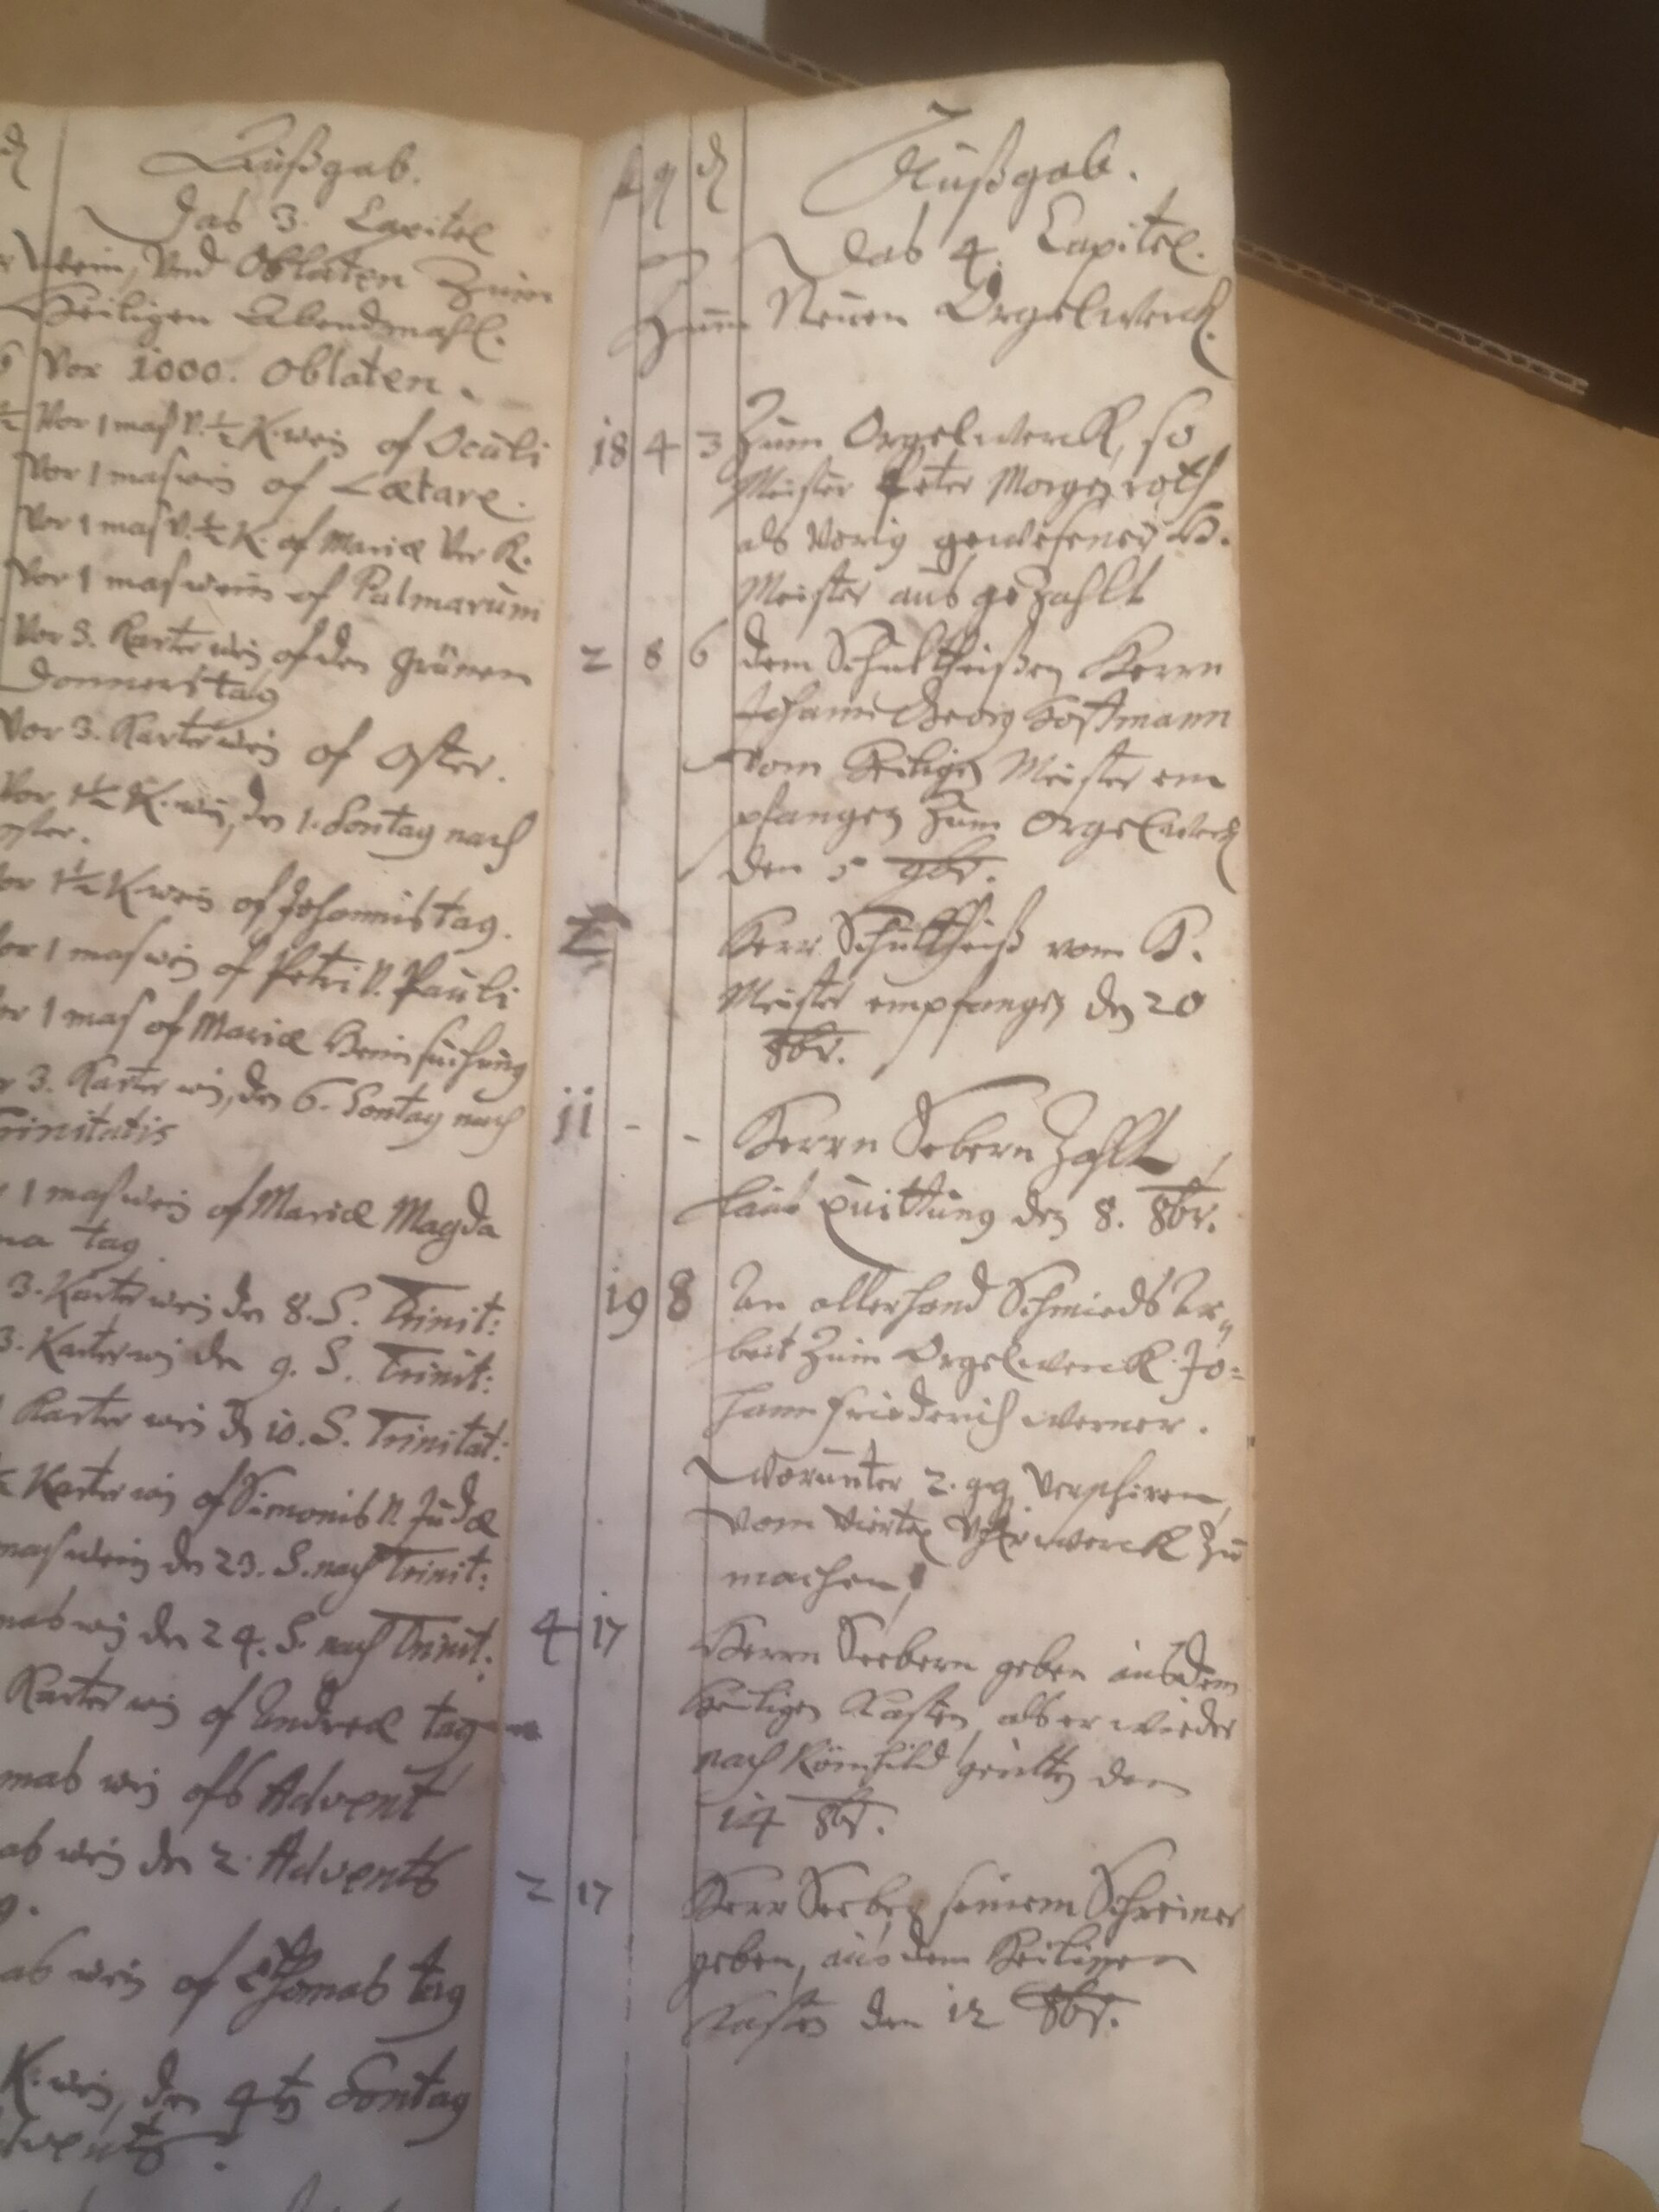 Außgab.
Das 3. Capitel
Wein, Vnd Oblaten Zum
Heiligen Abendmahl.
Vor 1000. Oblaten.
½ Vor 1 maß V. ½ K. wein of Oculi
Vor 1 maswein of Lætare.
Vor 1 maß V. ½ K. of Mariæ Ver K.
Vor 1 maswein of Palmarum
Vor 3. Karte wein of den grünen
Donnerstag
Vor 3. Karte wein of Oster.
Vor 1½ K. wein, den 1. Sontag nach
oster.
vor 1½ K wein of Johannis tag.
vor 1 maswein of Petri V. Pauli
vor 1 mas of Mariæ Heimsuchung
3. Karte wein, den 6. Sontag nach
Trinitatis
1 maswein of Mariæ Magda
na tag.
3. Karte wein den 8. S. Trinit:
3. Karte wein den 9. S. Trinit:
Karte wein den 10. S. Trinitat:
½ Karte wein of Simonis V. Judæ
maswein den 23. S. nach Trinit:
mas wein den 24. S. nach Trinit:
Karte wein of Andreæ tag
mas wein ofs Advent
mas wein den 2. Advents
mas wein of Thomas tag
K. wein, den 4ten Sontag
Advents.
fl g d Außgab.
Das 4. Capitel.
Zum Neuen Orgelwerck.
18 4 3 Zum Orgelwerck, so
Meister Peter Morgenroth
als vorig gewesener H.
Meister aus gezahlt
2 8 6 dem Schultheißen Herrn
Johann Georg Hoffmann
vom Heiligen Meister em
pfangen Zum Orgelwerck
den 5 9br.
Herr Schultheiß vom H.
Meister empfangen den 20
8br.
11 - - Herrn Sebern Zahlt
laut Quittung den 8. 8br.
19 8 An allerhand Schmieds Ar„
beit Zum Orgelwerck Jo=
hann Friederich Werner.
Worunter 2. gg
vom Viertel Uhrwerck zu
machen
4 17 Herrn Seebern geben aus dem
Heiligen Kasten, als er wieder
nach Römhild den
14 8br.
2 17 Herr Seeber seinem Schreiner
geben, aus dem Heiligen
Kasten den 12 8br.